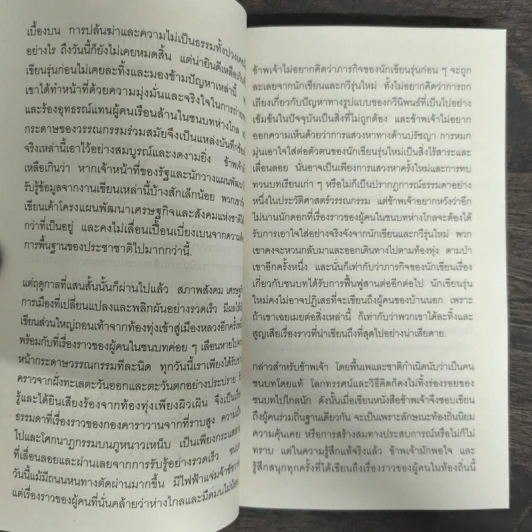 เบื้องบน การปล้นฆ่าและความไม่เป็นธรรมทั้งปวง
อย่างไร ถึงวันนี้ก็ยังไม่เคยหมดสิ้น แต่น่ายินดีเหลือเกิน
เขียนรุ่นก่อนไม่เคยละทิ้งและมองข้ามปัญหาเหล่านี้
เขาได้ทำหน้าที่ด้วยความมุ่งมั่นและจริงใจในการ
และร้องอุทธรณ์แทนผู้คนเรือนล้านในชนบทห่างไกล
กระดาษของวรรณกรรมร่วมสมัยจึงเป็นแหล่งบันทึก
จริงเหล่านี้เอาไว้อย่างสมบูรณ์และงดงามยิ่ง ข้าพเจ้า
เหลือเกินว่า หากเจ้าหน้าที่ของรัฐและนักวางแผนพัฒนา
รับรู้ข้อมูลจากงานเขียนเหล่านี้บ้างสักเล็กน้อย
เขียนเค้าโครงแผนพัฒนาเศรษฐกิจและสังคมแห่งชาติ
กว่าที่เป็นอยู่ และคงไม่เลื่อนเปื้อนเบี่ยงเบนจากความ
การพื้นฐานของประชาชาติไปมากกว่านี้.
แต่ฤดูกาลที่แสนสั้นนั้นก็ผ่านไปแล้ว สภาพสังคม
การเมืองที่เปลี่ยนแปลงและพลิกผันอย่างรวดเร็ว
เขียนส่วนใหญ่ถอนเท้าจากท้องทุ่งเข้าสู่เมืองหลวงอีกครั้ง
พร้อมกับที่เรื่องราวของผู้คนในชนบทค่อย ๆ เลือนหายไป
หน้ากระดาษวรรณกรรมทีละนิด ทุกวันนี้เราเพียงได้รับ
คราวจากฝั่งทะเลตะวันออกและตะวันตกอย่างประปราย
รู้และได้ยินเสียงร้องจากท้องทุ่งเพียงผิวเผิน จึงเป็น
ธรรมดาที่เรื่องราวของกองคาราวานจากที่ราบสูง
ไปและโศกนาฏกรรมบนภูหนาวเหน็บ เป็นเพียง
ที่เลื่อนลอยและผ่านเลยจากการรับรู้อย่างรวดเร็ว
วันนี้แม้มีถนนหนทางตัดผ่านมากขึ้น มีไฟฟ้าแจ่มจ้า
แต่เรื่องราวของผู้คนที่นั่นคล้ายว่าห่างไกลและมืดมน
ข้าพเจ้าไม่อยากคิดว่าภารกิจของนักเขียนรุ่นก่อน ๆ จะถูก
ละเลยจากนักเขียนและกวีรุ่นใหม่ ทั้งไม่อยากคิดว่าการถก
เถียงเกี่ยวกับปัญหาทางรูปแบบของกวีนิพนธ์ที่เป็นไปอย่าง
เข้มข้นในปัจจุบันเป็นสิ่งที่ไม่ถูกต้อง และข้าพเจ้าก็ไม่อยาก
ออกความเห็นด้วยว่าการแสวงหาทางด้านปรัชญา การหมก
มุ่นและเอาใจใส่ต่อตัวตนของนักเขียนรุ่นใหม่เป็นสิ่งไร้สาระและ
เลื่อนลอย นั่นอาจเป็นเพียงการแสวงหาครั้งใหม่และการทบ
ทวนบทเรียนเก่า ๆ หรือไม่ก็เป็นปรากฏการณ์ธรรมดาอย่าง
หนึ่งในประวัติศาสตร์วรรณกรรม แต่ข้าพเจ้าอยากหวังว่าอีก
ไม่นานนักดอกที่เรื่องราวของผู้คนในชนบทห่างไกลจะต้องได้
รับการเอาใจใส่อย่างจริงจังจากนักเขียนและกวีรุ่นใหม่ พวก
เขาคงจะหวนกลับมาและออกเดินทางไปตามท้องทุ่ง ตามป่า
เขาอีกครั้งหนึ่ง และนั่นก็เท่ากับว่าภารกิจของนักเขียนเรื่อง
เกี่ยวกับชนบทได้รับการฟื้นฟูสานต่ออีกต่อไป นักเขียนรุ่น
ใหม่คงไม่อาจปฏิเสธที่จะเขียนถึงผู้คนของบ้านนอก เพราะ
ถ้าเขาเฉยเมยต่อสิ่งเหล่านี้ ก็เท่ากับว่าพวกเขาได้ละทิ้งและ
สูญเสียเรื่องราวที่น่าเขียนถึงที่สุดไปอย่างน่าเสียดาย.
กล่าวสำหรับข้าพเจ้า โดยพื้นเพและชาติกำเนิดนับว่าเป็นคน
ชนบทโดยแท้ โลกทรรศน์และวิธีคิดก็คงไม่ทิ้งร่องรอยของ
ชนบทไปไกลนัก ดังนั้นเมื่อเขียนหนังสือข้าพเจ้าจึงชอบเขียน
ถึงผู้คนร่วมถิ่นฐานเดียวกัน จะเป็นเพราะลักษณะท้องถิ่นนิยม
ความคุ้นเคย หรือการสร้างสมทางประสบการณ์หรือไม่ก็ไม่
ทราบ แต่ในความรู้สึกที่แท้จริงแล้ว ข้าพเจ้ามักพอใจ และ
รู้สึกสนุกทุกครั้งที่ได้เขียนถึงเรื่องราวของผู้คนในท้องถิ่นนี้